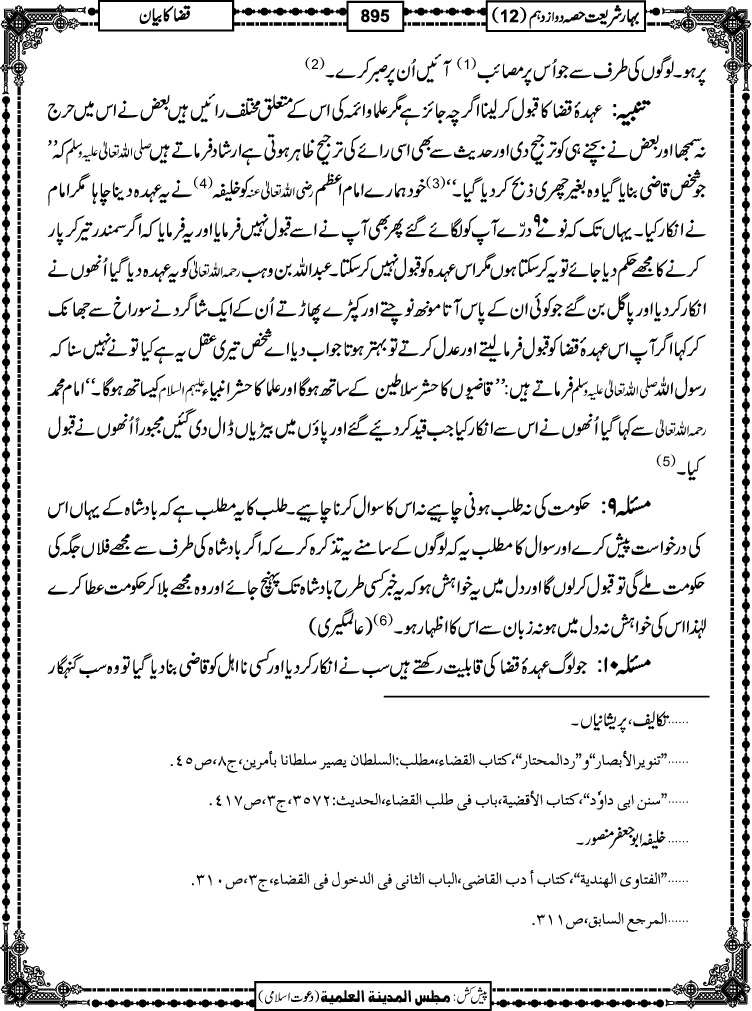 بہارِ شریعت حصہ دوازدہم (12)
895
قضا کا بیان
پر ہو۔ لوگوں کی طرف سے جو اُس پر مصائب (1) آئیں اُن پر صبر کرے۔ (2)
تنبیہ: عہدۂ قضا کا قبول کر لینا اگرچہ جائز ہے مگر علما و ائمہ کی اس کے متعلق مختلف رائیں ہیں بعض نے اس میں حرج
نہ سمجھا اور بعض نے بچنے ہی کو ترجیح دی اور حدیث سے بھی اسی رائے کی ترجیح ظاہر ہوتی ہے ارشاد فرماتے ہیں صلی اللہ تعالیٰ علیہ وسلم کہ ’’
جو شخص قاضی بنایا گیا وہ بغیر چھری ذبح کر دیا گیا۔‘‘ (3) خود ہمارے امام اعظم رضی اللہ تعالیٰ عنہ کو خلیفہ (4) نے یہ عہدہ دینا چاہا مگر امام
نے انکار کیا۔ یہاں تک کہ نوے ۹۰ درّے آپ کو لگائے گئے پھر بھی آپ نے اسے قبول نہیں فرمایا اور یہ فرمایا کہ اگر سمندر تیر کر پار
کرنے کا مجھے حکم دیا جائے تو یہ کر سکتا ہوں مگر اس عہدہ کو قبول نہیں کر سکتا۔ عبداللہ بن وہب رحمہ اللہ تعالیٰ کو یہ عہدہ دیا گیا اُنھوں نے
انکار کر دیا اور پاگل بن گئے جو کوئی ان کے پاس آتا مونھ نوچتے اور کپڑے پھاڑتے اُن کے ایک شاگرد نے سوراخ سے جھانک
کر کہا اگر آپ اس عہدۂ قضا کو قبول فرما لیتے اور عدل کرتے تو بہتر ہوتا جواب دیا اے شخص تیری عقل یہ ہے کیا تو نے نہیں سنا کہ
رسول اللہ صلی اللہ تعالیٰ علیہ وسلم فرماتے ہیں: ’’قاضیوں کا حشر سلاطین کے ساتھ ہوگا اور علما کا حشر انبیاء علیہم السلام کیساتھ ہوگا۔‘‘ امام محمد
رحمہ اللہ تعالیٰ سے کہا گیا اُنھوں نے اس سے انکار کیا جب قید کر دیئے گئے اور پاؤں میں بیڑیاں ڈال دی گئیں مجبوراً اُنھوں نے قبول
کیا۔ (5)
مسئلہ ۹: حکومت کی نہ طلب ہونی چاہیے نہ اس کا سوال کرنا چاہیے۔ طلب کا یہ مطلب ہے کہ بادشاہ کے یہاں اس
کی درخواست پیش کرے اور سوال کا مطلب یہ کہ لوگوں کے سامنے یہ تذکرہ کرے کہ اگر بادشاہ کی طرف سے مجھے فلاں جگہ کی
حکومت ملے گی تو قبول کر لوں گا اور دل میں یہ خواہش ہو کہ یہ خبر کسی طرح بادشاہ تک پہنچ جائے اور وہ مجھے بلا کر حکومت عطا کرے
لہٰذا اس کی خواہش نہ دل میں ہو نہ زبان سے اس کا اظہار ہو۔ (6) (عالمگیری)
مسئلہ ۱۰: جو لوگ عہدۂ قضا کی قابلیت رکھتے ہیں سب نے انکار کر دیا اور کسی نااہل کو قاضی بنا دیا گیا تو وہ سب گنہگار
......تکالیف، پریشانیاں۔
......"تنویر الأبصار" و "ردالمحتار"، کتاب القضاء، مطلب: السلطان یصیر سلطانا بأمرین، ج۸، ص۴۵.
......"سنن ابی داوٗد"، کتاب الأقضیۃ، باب فی طلب القضاء، الحدیث: ۳۵۷۲، ج۳، ص۴۱۷.
......خلیفہ ابو جعفر منصور۔
......"الفتاوی الھندیۃ"، کتاب أدب القاضی، الباب الثانی فی الدخول فی القضاء، ج۳، ص۳۱۰.
......المرجع السابق، ص۳۱۱.
پیش کش: مجلس المدینۃ العلمیۃ (دعوت اسلامی)